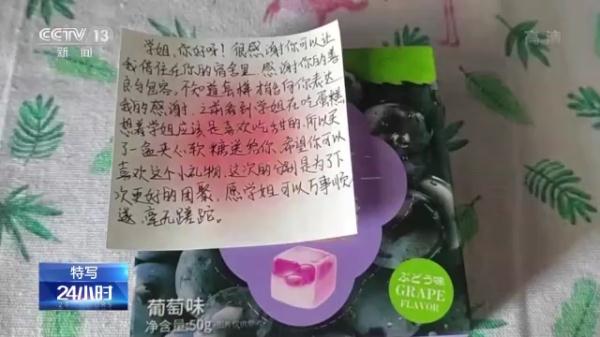 CCTV 13
新闻
高清
学姐，你好呀！很感谢你可以让
我借住在你的宿舍里，感谢你的善
良与包容。不知道怎样才能向你表达
我的感谢，之前看到学姐在吃蛋糕
想着学姐应该是喜欢吃甜的，所以买
了一盒夹心软糖送给你，希望你可以
喜欢这个小礼物，这次的分别是为了下
次更好的团聚，愿学姐可以万事顺
遂，毫无蹉跎。
ぶどう味
GRAPE
FLAVOR
葡萄味
净含量:50g
特写
24小时